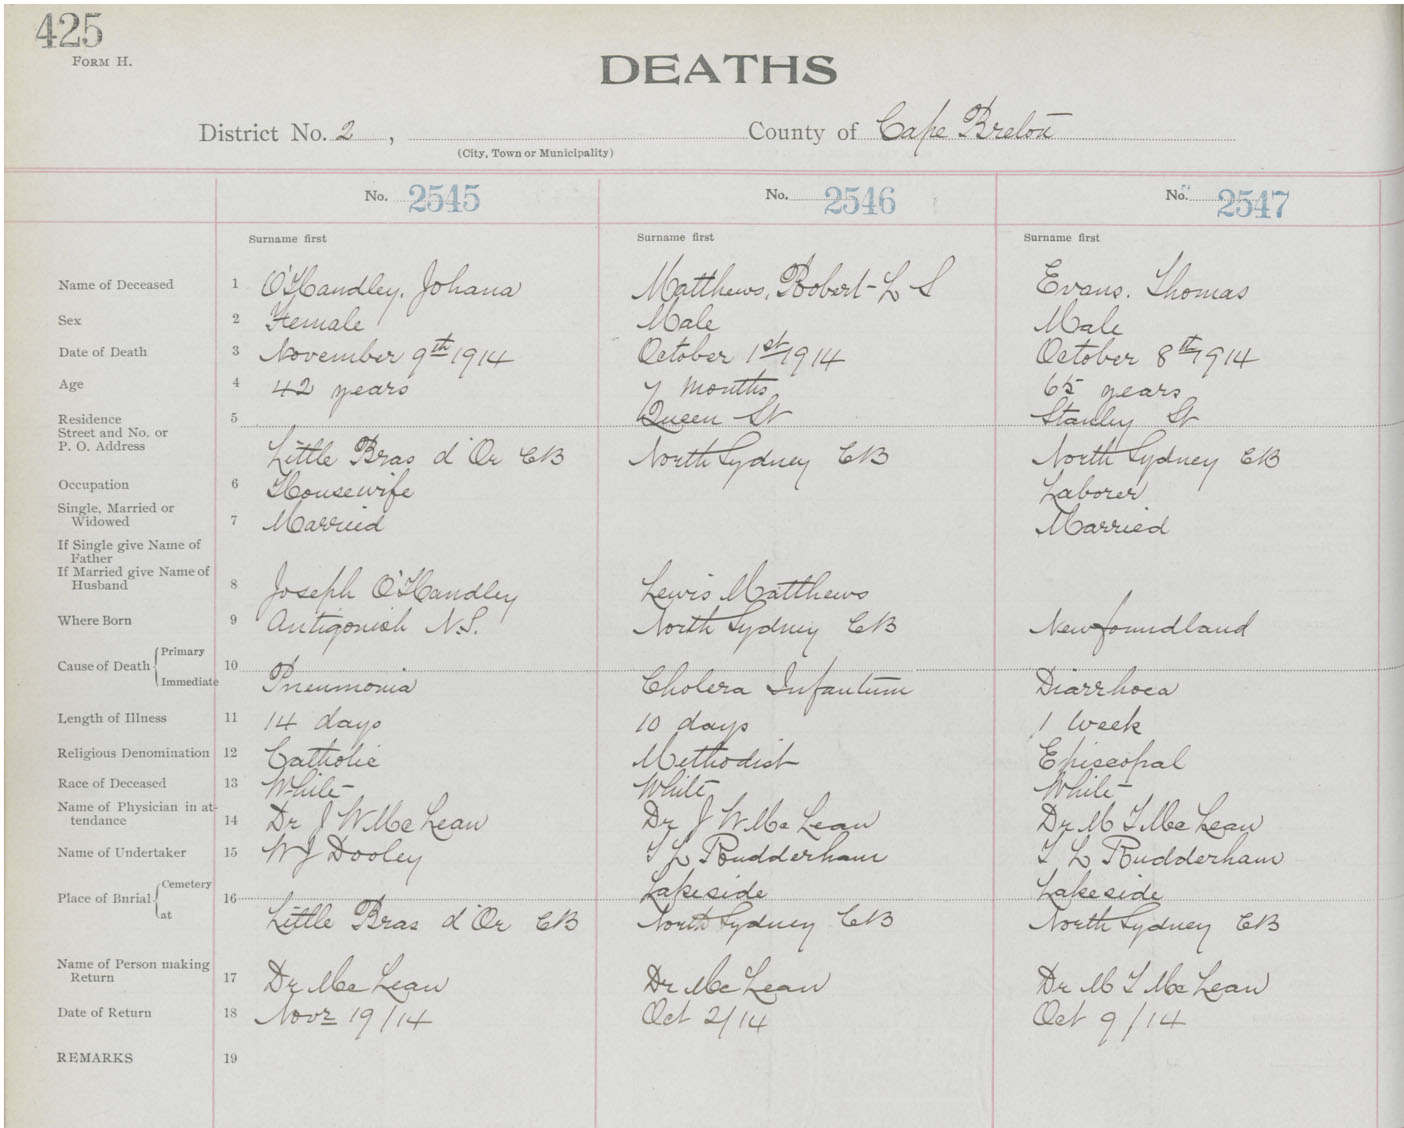 425
FORM H.
DEATHS
District No. 2 , County of Cape Breton
(City, Town or Municipality)
No. 2545 No. 2546 No. 2547
Surname first Surname first Surname first
Name of Deceased 1 O'Handley, Johana Matthews, Robert-L S Evans. Thomas
Sex 2 Female Male Male
Date of Death 3 November 9th 1914 October 1st 1914 October 8th 1914
Age 4 42 years 7 months 65 years
Residence 5 Queen St Stanley St
Street and No. or
P. O. Address Little Bras d'Or CB North Sydney CB North Sydney CB
Occupation 6 Housewife Laborer
Single, Married or
Widowed 7 Married Married
If Single give Name of
Father
If Married give Name of
Husband 8 Joseph O'Handley Lewis Matthews
Where Born 9 Antigonish N.S. North Sydney CB Newfoundland
Cause of Death Primary 10
Immediate Pneumonia Cholera Infantum Diarrhoea
Length of Illness 11 14 days 10 days 1 week
Religious Denomination 12 Catholic Methodist Episcopal
Race of Deceased 13 White White White
Name of Physician in at-
tendance 14 Dr J W McLean Dr J W McLean Dr M T McLean
Name of Undertaker 15 W J Dooley T L Rudderham T L Rudderham
Place of Burial Cemetery 16 Lakeside Lakeside
at Little Bras d'Or CB North Sydney CB North Sydney CB
Name of Person making
Return 17 Dr McLean Dr McLean Dr M T McLean
Date of Return 18 Novr 19/14 Oct 2/14 Oct 9/14
REMARKS 19